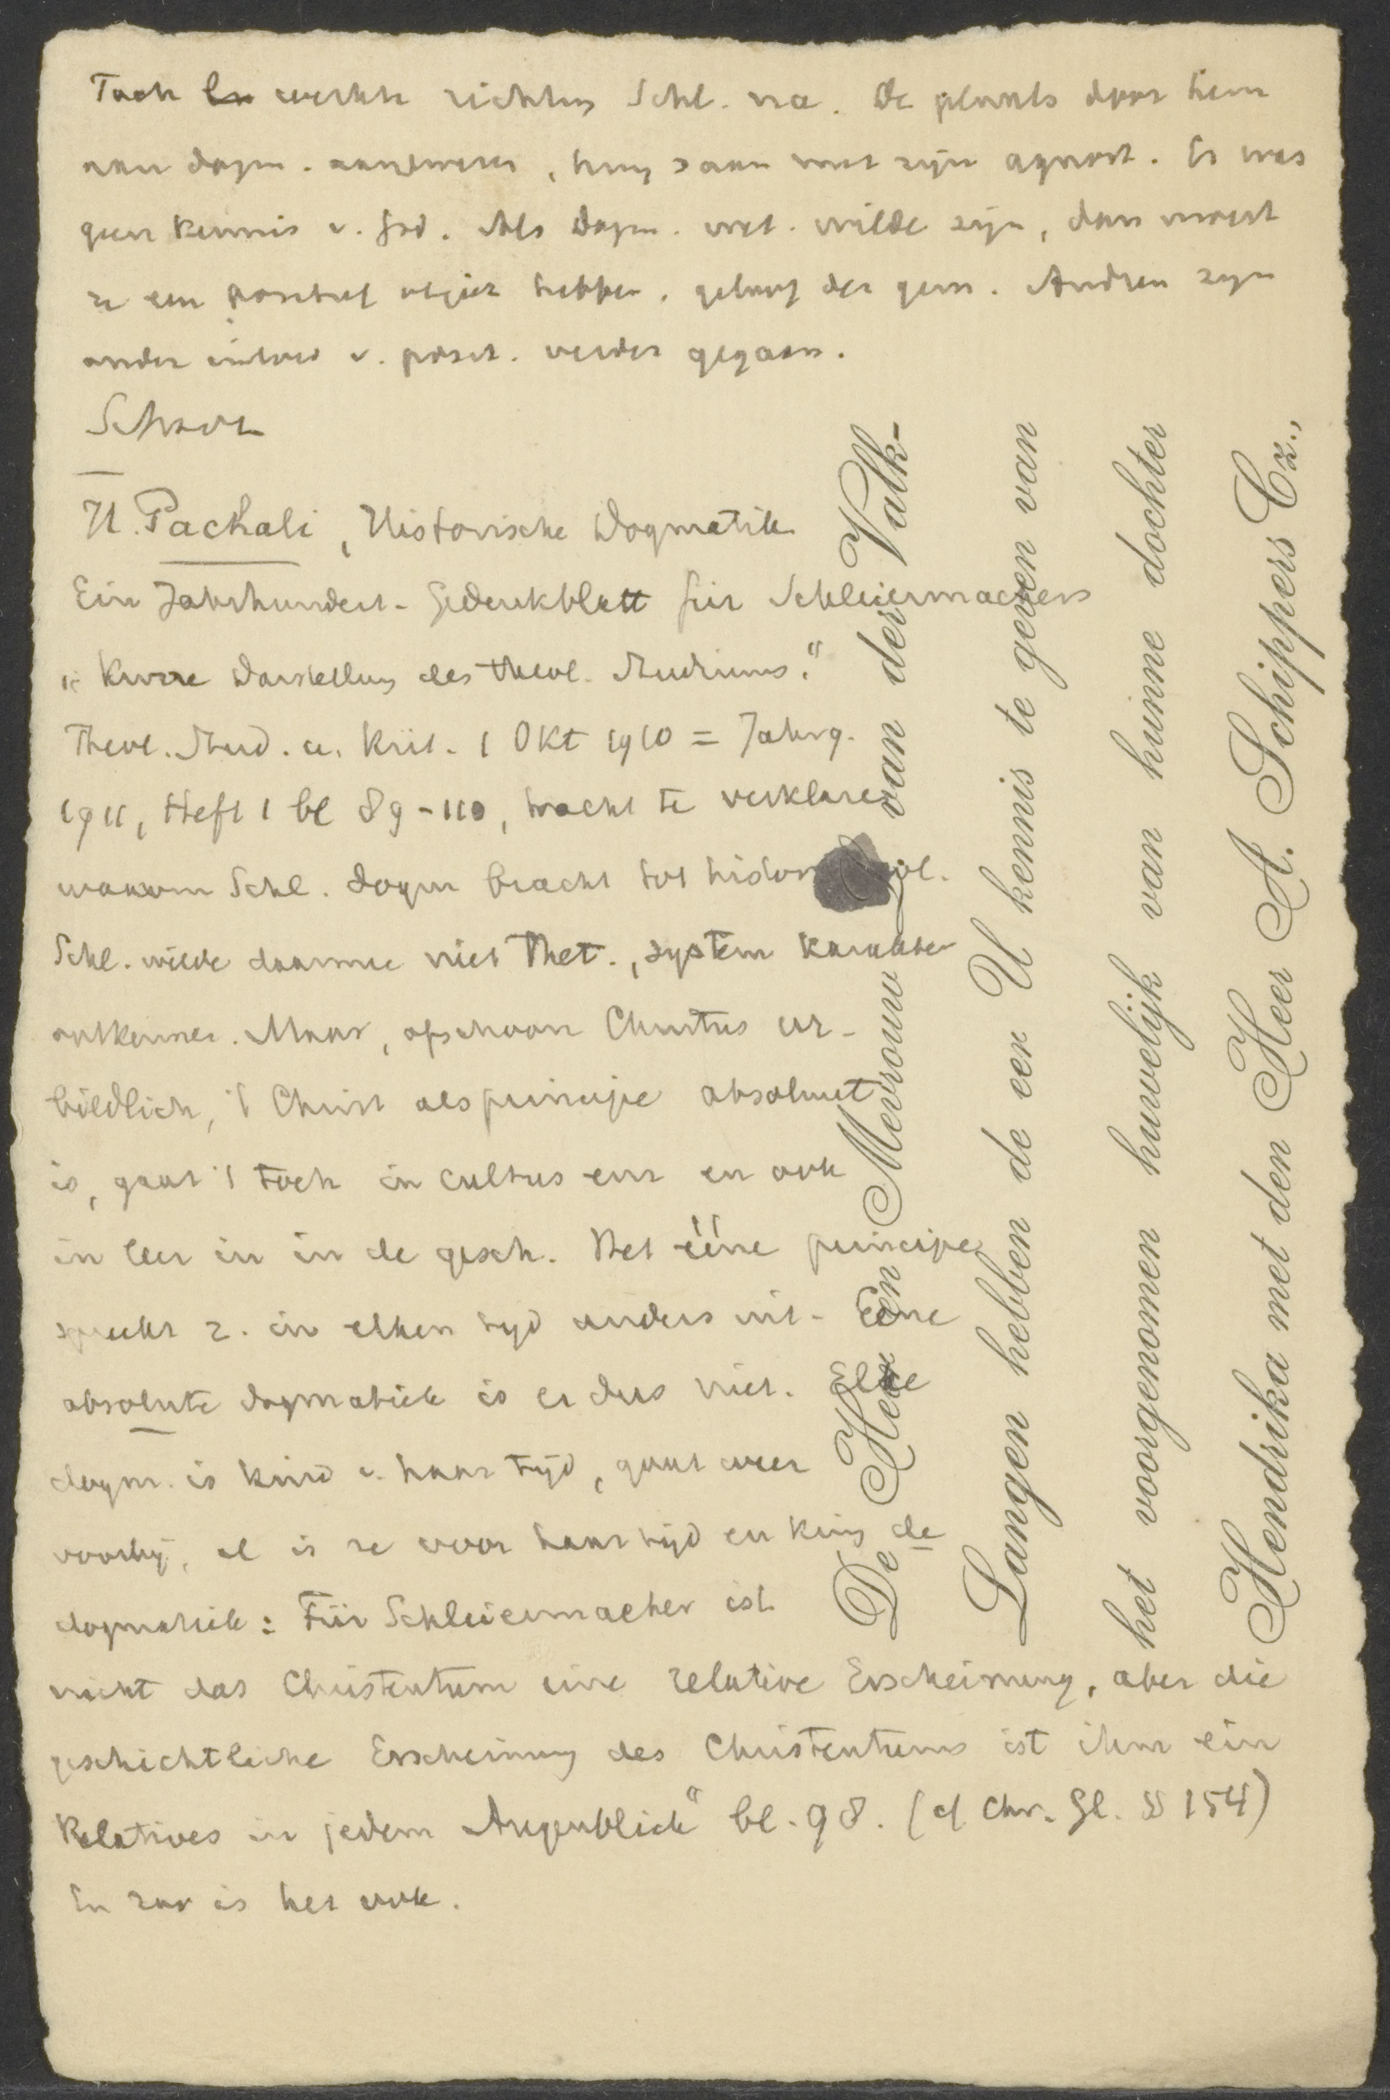 Toch werkte richting Schl. na. De plaats door hem
aan dogm. aangewezen, hing saam met zijn agnost. Er was
geen kennis v. God. Als Dogm. wet. wilde zijn, dan moest
ze een positief object hebben, geloof der gem. Andren zijn
ander invloed v. posit. verder gegaan.
Schrover
H. Pachali, Historische Dogmatik
Ein Jahrhundert-Gedenkblatt für Schleiermachers
„Kurze Darstellung des theol. Studiums."
Theol. Stud. u. Krit. 1 Okt 1910 = Jahrg.
1911, Heft 1 bl 89-110, tracht te verklaren
waarom Schl. dogm bracht tot histor
Schl. wilde daarmee niet Thet., system karakter
ontkennen. Maar, ofschoon Christus ur-
bildlich, 't Christ als principe absoluut
is, gaat 't toch in cultus enz en ook
in leer in in de gesch. Het ééne principe
spreekt z. in elken tijd anders uit. Eene
absolute dogmatiek is er dus niet. Elke
dogm. is kind v. haar tijd, gaat weer
voorbij, al is ze voor haar tijd en kring de
dogmatiek: Für Schleiermacher ist
nicht das Christentum eine relative Erscheinung, aber die
geschichtliche Erscheinung des Christentums ist ihm ein
Relatives in jedem Augenblick" bl. 98. (cf Chr. Gl. § 154)
En zoo is het ook.
De Heer en Mevrouw van der Valk-
Langen hebben de eer U kennis te geven van
het voorgenomen huwelijk van hunne dochter
Hendrika met den Heer A. Schippers Cz.,